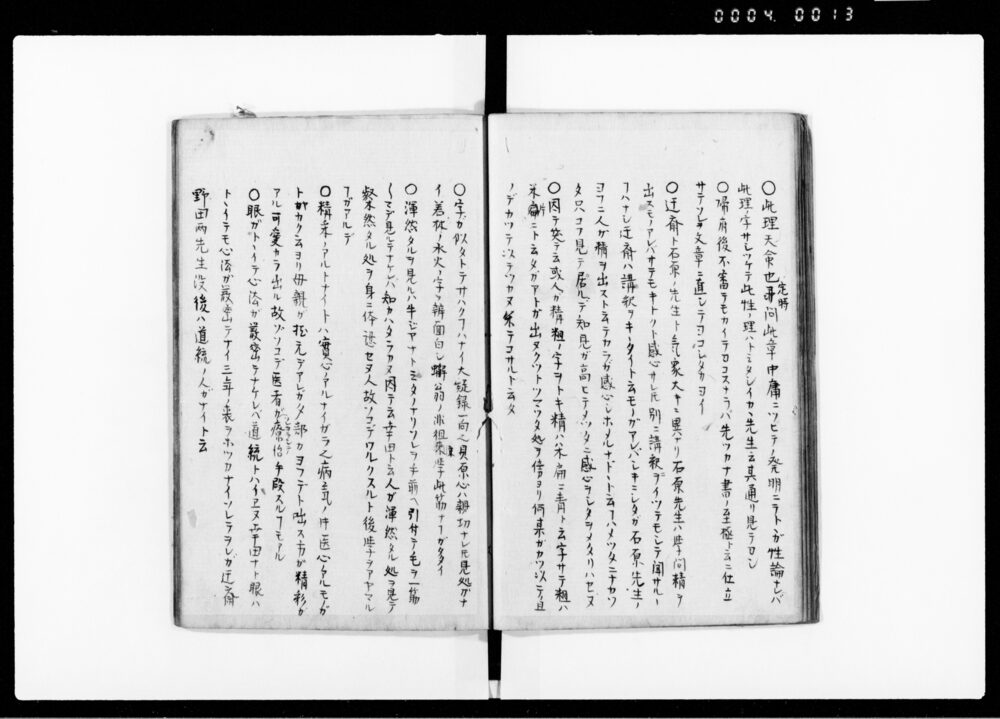 0004 0013
〇此理天命也 定時 再問此章中庸ニツヒテノ発明ニテトシガ性論ナレバ
此理ノ字サレツケテ此性ノ理ハトミタシイカヽ先生云其通リ見テロシ
〇帰府後不審テモカイテロコスナラバ先ツカナ書ノ至極ト云ニ仕立
サテソレヲ文章ニ直シテヨコシタカヨイ
〇迂斎ト石原ノ先生ト気象大キニ異ナリ石原先生ハ学問精ヲ
出スモノアレバサテモキトクト感心サレ別ニ講釈デイツテモシテ聞サルー
フハナシ迂斎ハ講釈ヲキヽタイト云モノガアレバシキニシタガ石原先生ノ
ヨフニ人ガ精ヲ出スト云テカラガ感心シホメルナドヽ云フハメツタニナカツ
タ只コフ見テ居ルデ知見ガ高ヒテメツタニ感心ヲシタヲメタリハセヌ
〇因テ笑テ云或人ガ精粗ノ字ヲトキ精ハ米扁ニ青ト云字サテ粗ハ
米扁ニト云タガアトガ出ヌクツトツマツタ処ヲ傍ヨリ何某ガカツ以テ且
ノデカツテステツカヌ米テコサルト云タ
〇字カ似タトテサハクフハナイ大疑録一向之貝原心ハ親切ナレ
見処ガナイ
若林ノ水火ノ字ヲ弁面白シ
〇渾然タルヲ見ルハ牛ジヤナトミタノナリソレヲ手前ヘ引付テ毛ヲ一筋
ーマデ見ルテナケレバ知カハタラカヌ因テ云幸田ト云人ガ渾然タル処ヲ見テ
粲然タル処ヲ身ニ体認セヌ人故ソコデワルクスルト後学ヲアヤマル
フガアルデ
〇精采ノアルトナイトハ實心ノアルナイガラ之病気ノ時医心タルモノガ
トカクニヨリ母親ガ
アル可愛カラ出ル故ゾソコデ医者ガ療治手段スルフモアル
〇眼ガトヽイテ心法ガ厳密テナケレバ道統トハイヱヌ幸田ナト眼ハ
トヽイテモ心法ガ厳密テナイ三年ノ喪ヲホツカナイソレテヲシガ迂斎
野田両先生没後ハ道統ノ人ガナイト云